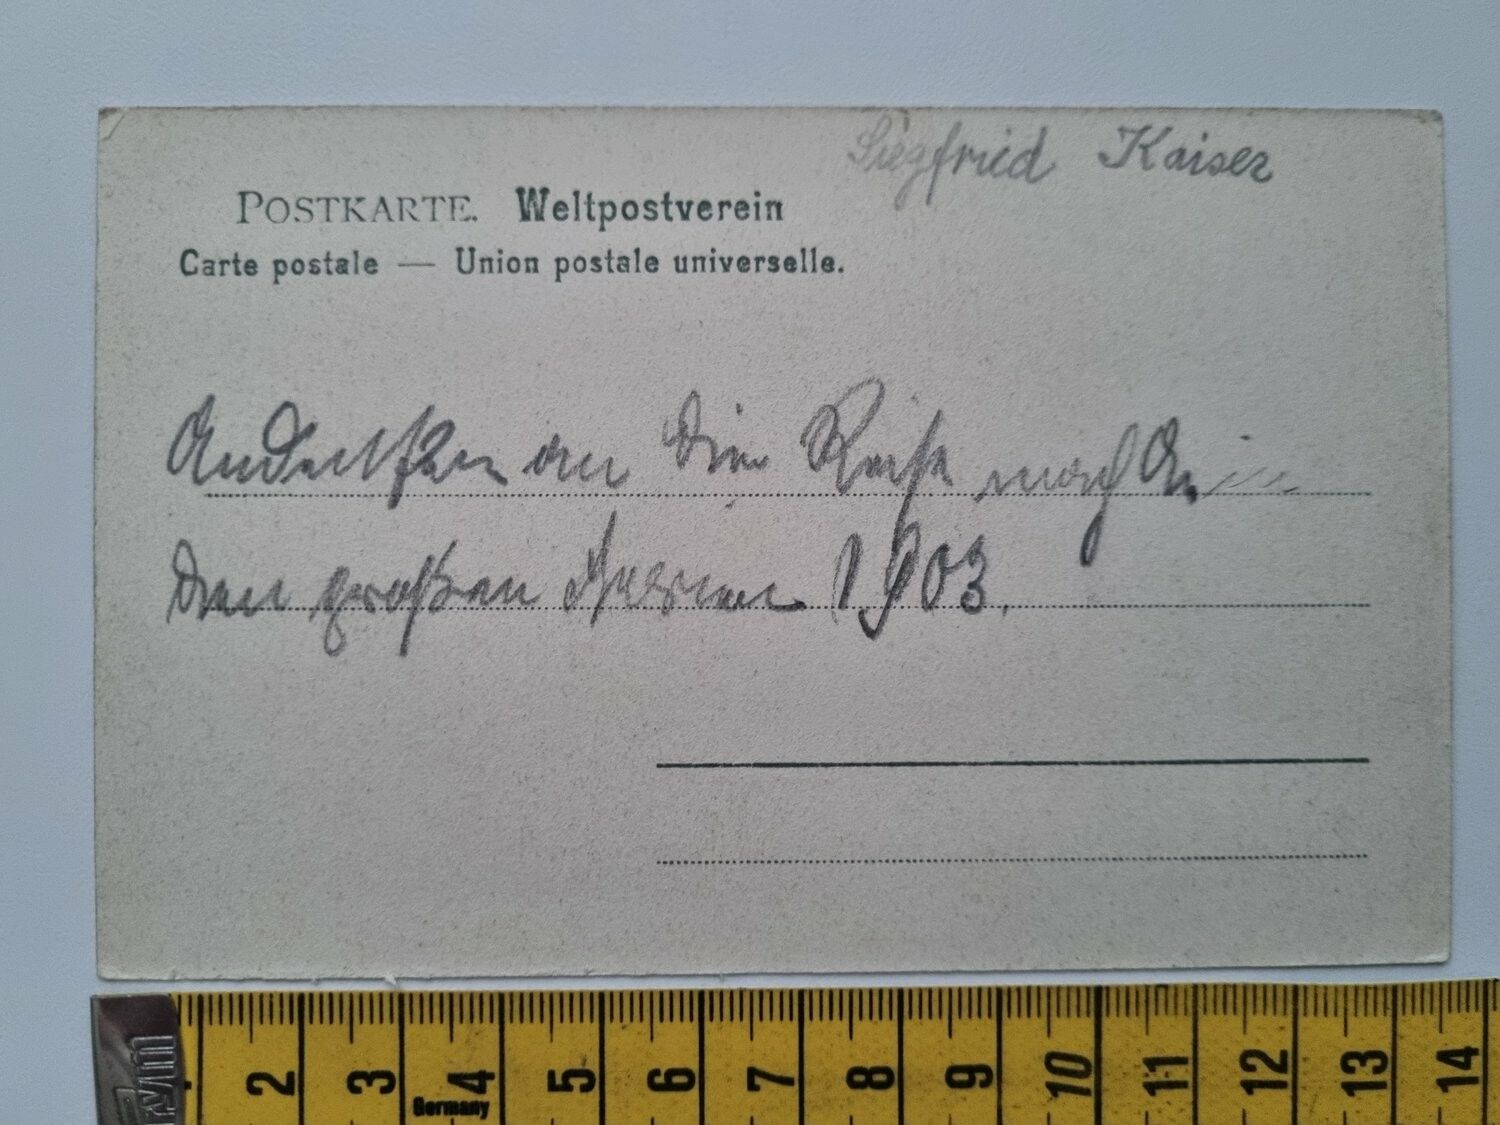 Siegfried Kaiser
POSTKARTE. Weltpostverein
Carte postale — Union postale universelle.
Andenken an die Reise nach
den großen Ferien 1903.
2 3 4 5 6 7 8 9 10 11 12 13 14
Germany